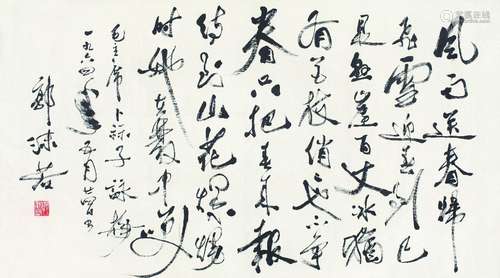 風雨送春歸
飛雪迎春到已
是懸崖百丈冰猶
有花枝俏也不爭
春只把春來報
待到山花爛熳
時她在叢中笑
毛主席卜算子詠梅
一九六四年五月
郭沫若